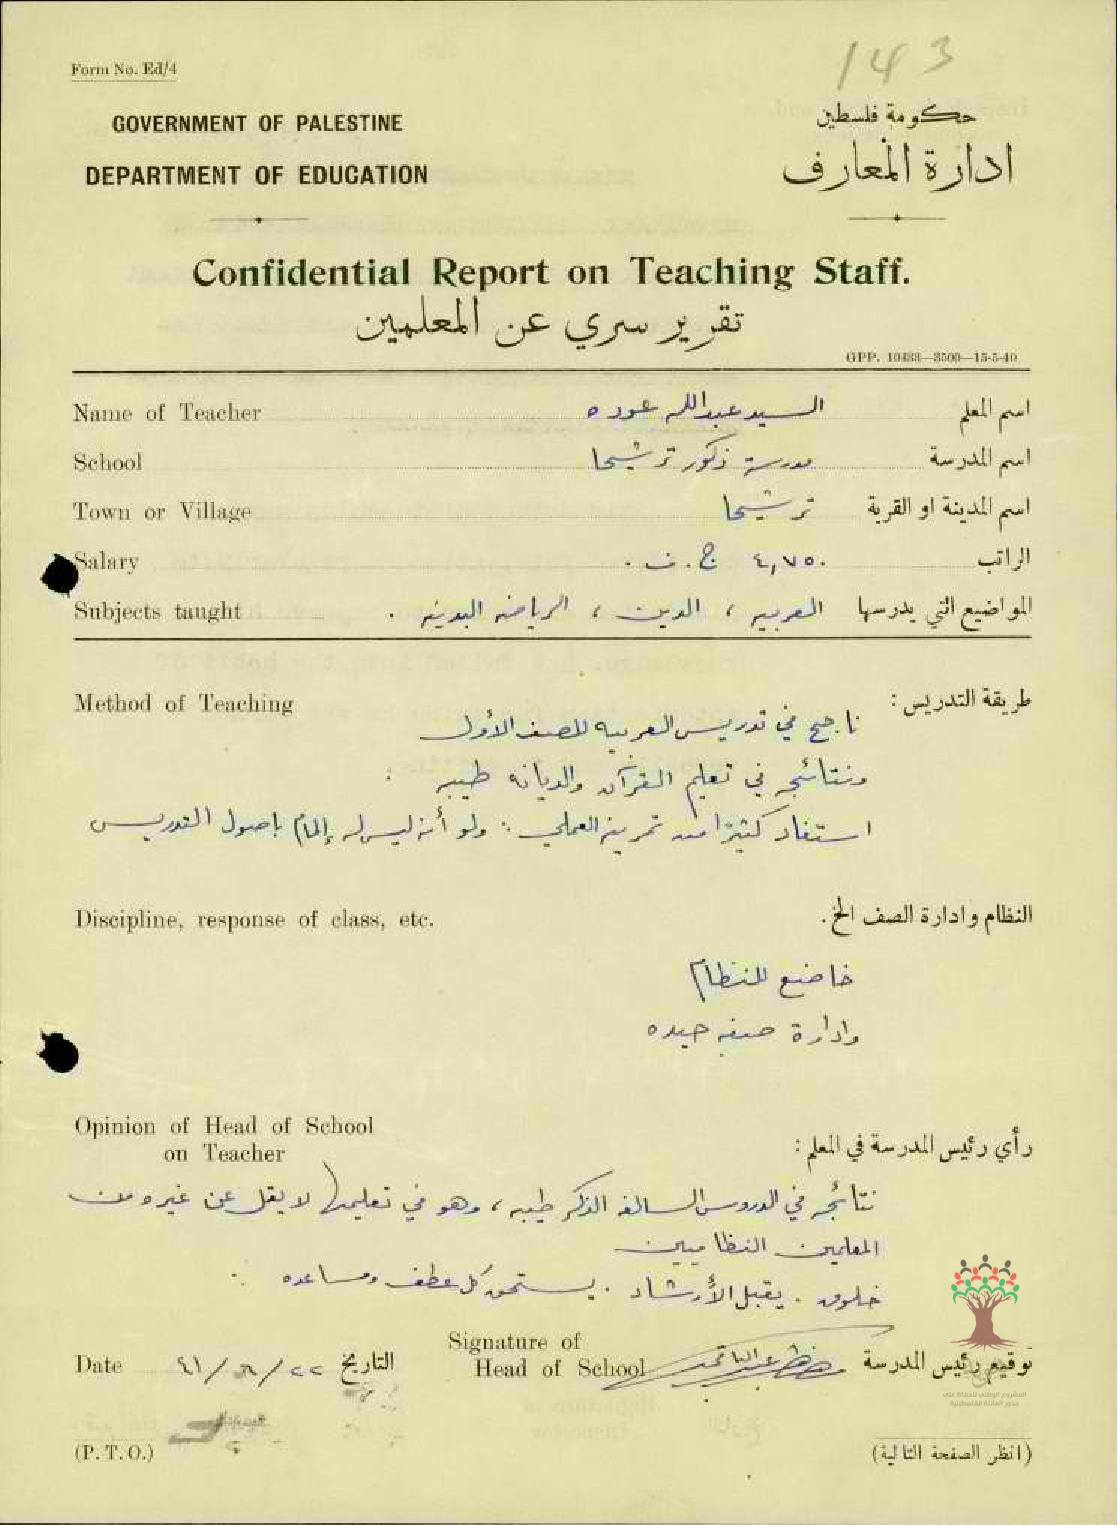 143
Form No. Ed/4
GOVERNMENT OF PALESTINE
حكومة فلسطين
DEPARTMENT OF EDUCATION
ادارة المعارف
Confidential Report on Teaching Staff.
تقرير سري عن المعلمين
GPP. 10433—3500—15-5-40
Name of Teacher السيد عبدالله عوده اسم المعلم
School مدرسة ذكور ترشيحا اسم المدرسة
Town or Village ترشيحا اسم المدينة او القرية
Salary ٤,٧٥٠ ج. ف. الراتب
Subjects taught العربيه ، الدين ، الرياضه البدنيه . المواضيع التي يدرسها
Method of Teaching طريقة التدريس :
ناجح في تدريس العربيه للصف الأول
ونتائجه في تعليم القرآن والديانه طيبه
استفاد كثيرًا من تمرينه العملي : ولو أنه ليس له إلمام باصول التدريس
Discipline, response of class, etc. النظام وادارة الصف الخ.
خاضع للنظام
وادارة صفه جيده
Opinion of Head of School
on Teacher
رأي رئيس المدرسة في المعلم :
نتائجه في الدروس السالفه الذكر طيبه ، وهو في تعليمها لا يقل عن غيره من
المعلمين النظاميين
خلوق . يقبل الأرشاد . يستحق كل عطف ومساعده
Signature of
Head of School توقيع رئيس المدرسة
Date ٢٢/ /٤١ التاريخ
(P. T. O.) (انظر الصفحة التالية)